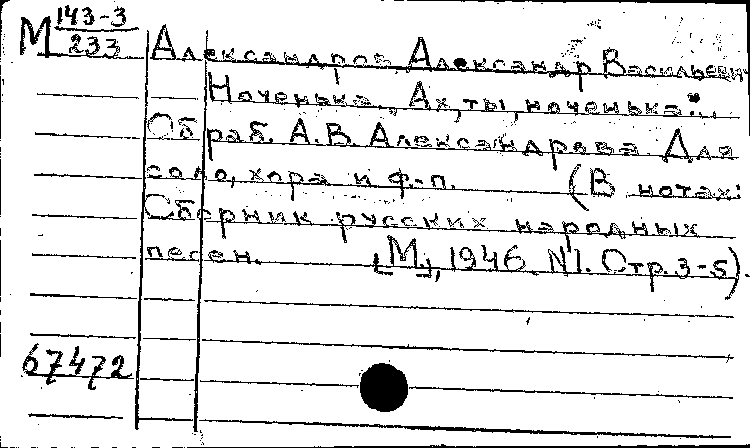 М 143-3
233
Александров, Александр Васильевич
Ноченька. "Ах, ты, ноченька"...
Обраб. А.В. Александрова Для
соло, хора и ф.-п. (В нотах:
Сборник русских народных
песен. [М.], 1946. №1. Стр. 3-5).
67472